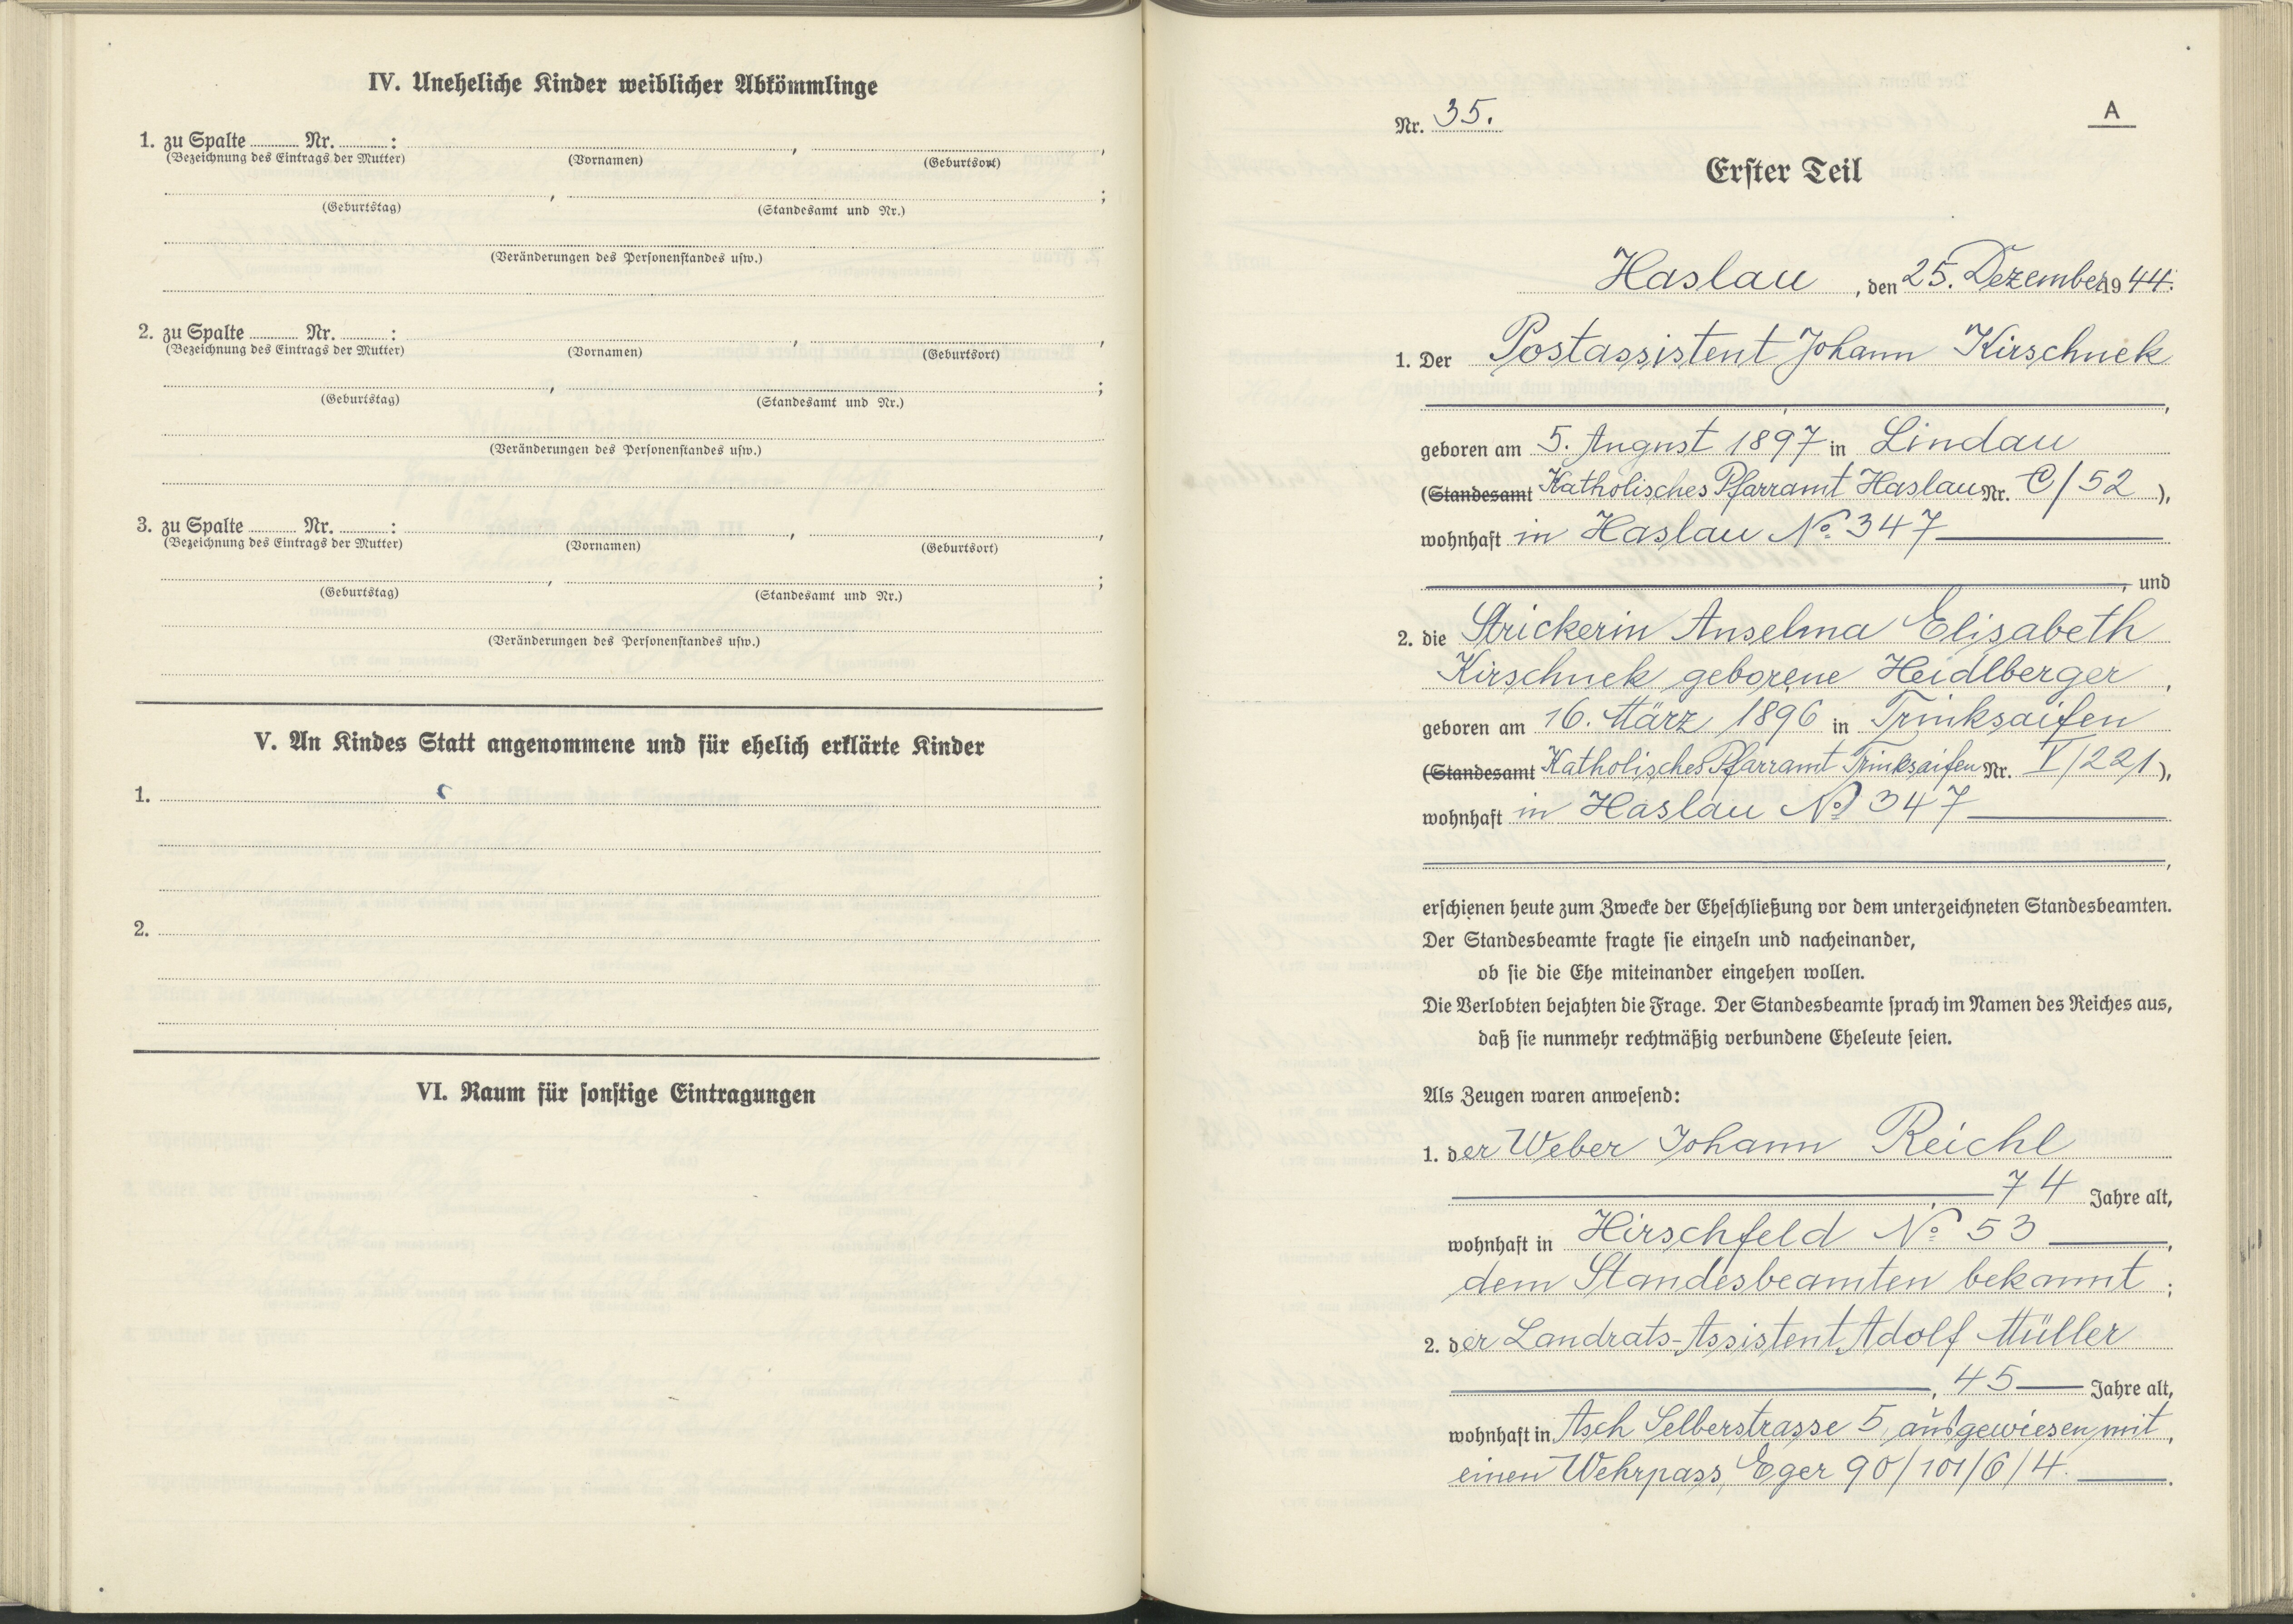 IV. Uneheliche Kinder weiblicher Abkömmlinge
1. zu Spalte ........ Nr. ........ :
(Bezeichnung des Eintrags der Mutter) (Vornamen) (Geburtsort)
(Geburtstag) (Standesamt und Nr.)
(Veränderungen des Personenstandes usw.)
2. zu Spalte ........ Nr. ........ :
(Bezeichnung des Eintrags der Mutter) (Vornamen) (Geburtsort)
(Geburtstag) (Standesamt und Nr.)
(Veränderungen des Personenstandes usw.)
3. zu Spalte ........ Nr. ........ :
(Bezeichnung des Eintrags der Mutter) (Vornamen) (Geburtsort)
(Geburtstag) (Standesamt und Nr.)
(Veränderungen des Personenstandes usw.)
V. An Kindes Statt angenommene und für ehelich erklärte Kinder
1.
2.
VI. Raum für sonstige Eintragungen
A
Nr. 35.
Erster Teil
Haslau, den 25. Dezember 1944.
1. Der Postassistent Johann Kirschnek
geboren am 5. August 1897 in Lindau
(Standesamt Katholisches Pfarramt Haslau Nr. C/52),
wohnhaft in Haslau No. 347
, und
2. die Strickerin Anselma Elisabeth
Kirschnek geborene Heidlberger,
geboren am 16. März 1896 in Trinksaifen
(Standesamt Katholisches Pfarramt Trinksaifen Nr. V/221),
wohnhaft in Haslau No 347
erschienen heute zum Zwecke der Eheschließung vor dem unterzeichneten Standesbeamten.
Der Standesbeamte fragte sie einzeln und nacheinander,
ob sie die Ehe miteinander eingehen wollen.
Die Verlobten bejahten die Frage. Der Standesbeamte sprach im Namen des Reiches aus,
daß sie nunmehr rechtmäßig verbundene Eheleute seien.
Als Zeugen waren anwesend:
1. der Weber Johann Reichl
74 Jahre alt,
wohnhaft in Hirschfeld No. 53,
dem Standesbeamten bekannt;
2. der Landrats-Assistent Adolf Müller
, 45 Jahre alt,
wohnhaft in Asch Selberstrasse 5, ausgewiesen mit,
einen Wehrpass, Eger 90/101/6/4.